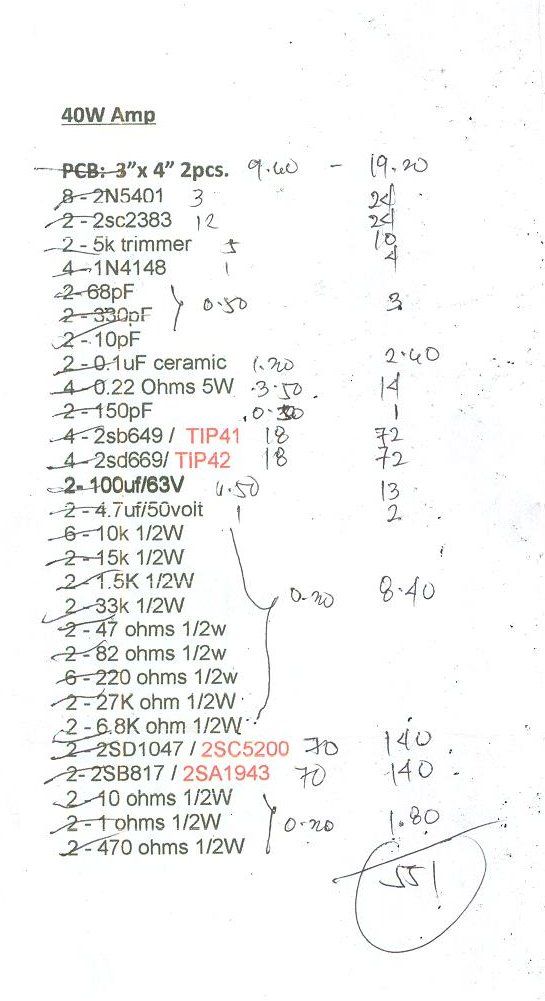 40W Amp
PCB: 3”x 4” 2pcs. 9.60 - 19.20
8 - 2N5401 3 24
2 - 2sc2383 12 24
2 - 5k trimmer 5 10
4 - 1N4148 1 4
2- 68pF
2 - 330pF 0.50 3
2 - 10pF
2 - 0.1uF ceramic 1.20 2.40
4 - 0.22 Ohms 5W 3.50 14
2 - 150pF 1
4 - 2sb649 / TIP41 18 72
4 - 2sd669/ TIP42 18 72
2- 100uf/63V 6.50 13
2 - 4.7uf/50volt 1 2
6 - 10k 1/2W
2 - 15k 1/2W
2 - 1.5K 1/2W
2 - 33k 1/2W 0.20 8.40
2 - 47 ohms 1/2w
2 - 82 ohms 1/2w
6 - 220 ohms 1/2w
2 - 27K ohm 1/2W
2 - 6.8K ohm 1/2W
2 - 2SD1047 / 2SC5200 70 140
2- 2SB817 / 2SA1943 70 140
2 - 10 ohms 1/2W
2 - 1 ohms 1/2W 0.20 1.80
2 - 470 ohms 1/2W
551